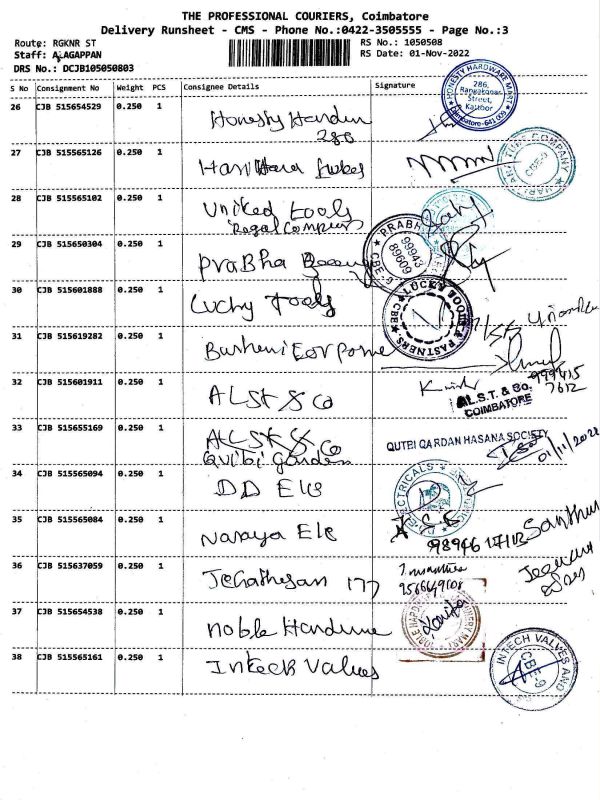 THE PROFESSIONAL COURIERS, Coimbatore
Delivery Runsheet - CMS - Phone No.:0422-3505555 - Page No.:3
Route: RGKNR ST
RS No.: 1050508
Staff: ALAGAPPAN
RS Date: 01-Nov-2022
DRS No.: DCJB105050803
S No Consignment No Weight PCS Consignee Details Signature
26 CJB 515654529 0.250 1 Honesty
286
HONESTY HARDWARE MART
286,
Rangakonar
Street,
Kattoor
Coimbatore-641 009
27 CJB 515565126 0.250 1 Harihara Tubes
TUBE COMPANY
CBE-9
28 CJB 515565102 0.250 1 United tools
29 CJB 515650304 0.250 1 Prabha
PRABHA
99943
89609
CBE-9
30 CJB 515601888 0.250 1 Lucky Tools
LUCKY TOOLS & FASTNERS
CBE
31 CJB 515619282 0.250 1
32 CJB 515601911 0.250 1 ALST & Co
A.L.S.T. & Co.
COIMBATORE
999415
7612
33 CJB 515655169 0.250 1 ALST & Co
Qutbi garden
QUTBI QARDAN HASANA SOCIETY
01/11/2022
34 CJB 515565094 0.250 1 DD Ele
ELECTRICALS
35 CJB 515565084 0.250 1 Naraya Ele
98946 17113
36 CJB 515637059 0.250 1 Jegathesan 177
37 CJB 515654538 0.250 1 Noble Hardware
38 CJB 515565161 0.250 1 Inteck Valves
INTECH VALVES AND
CBE-9